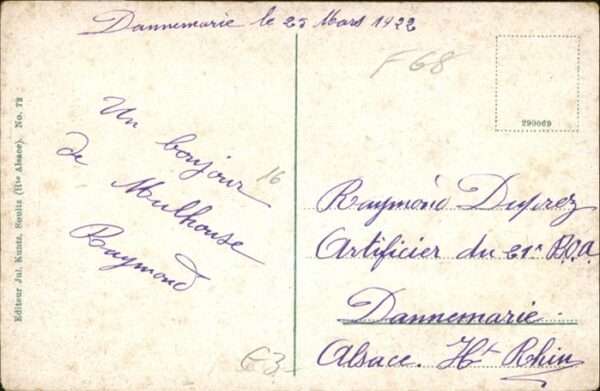 Dannemarie le 25 Mars 1922
F68
290069
Un bonjour
de Mulhouse
Raymond
16
Raymond Duprez
Artificier du 21e B.O.A.
Dannemarie
Alsace. Ht Rhin
€3-
Editeur Jul. Kuntz, Soultz (Hte Alsace). No. 72